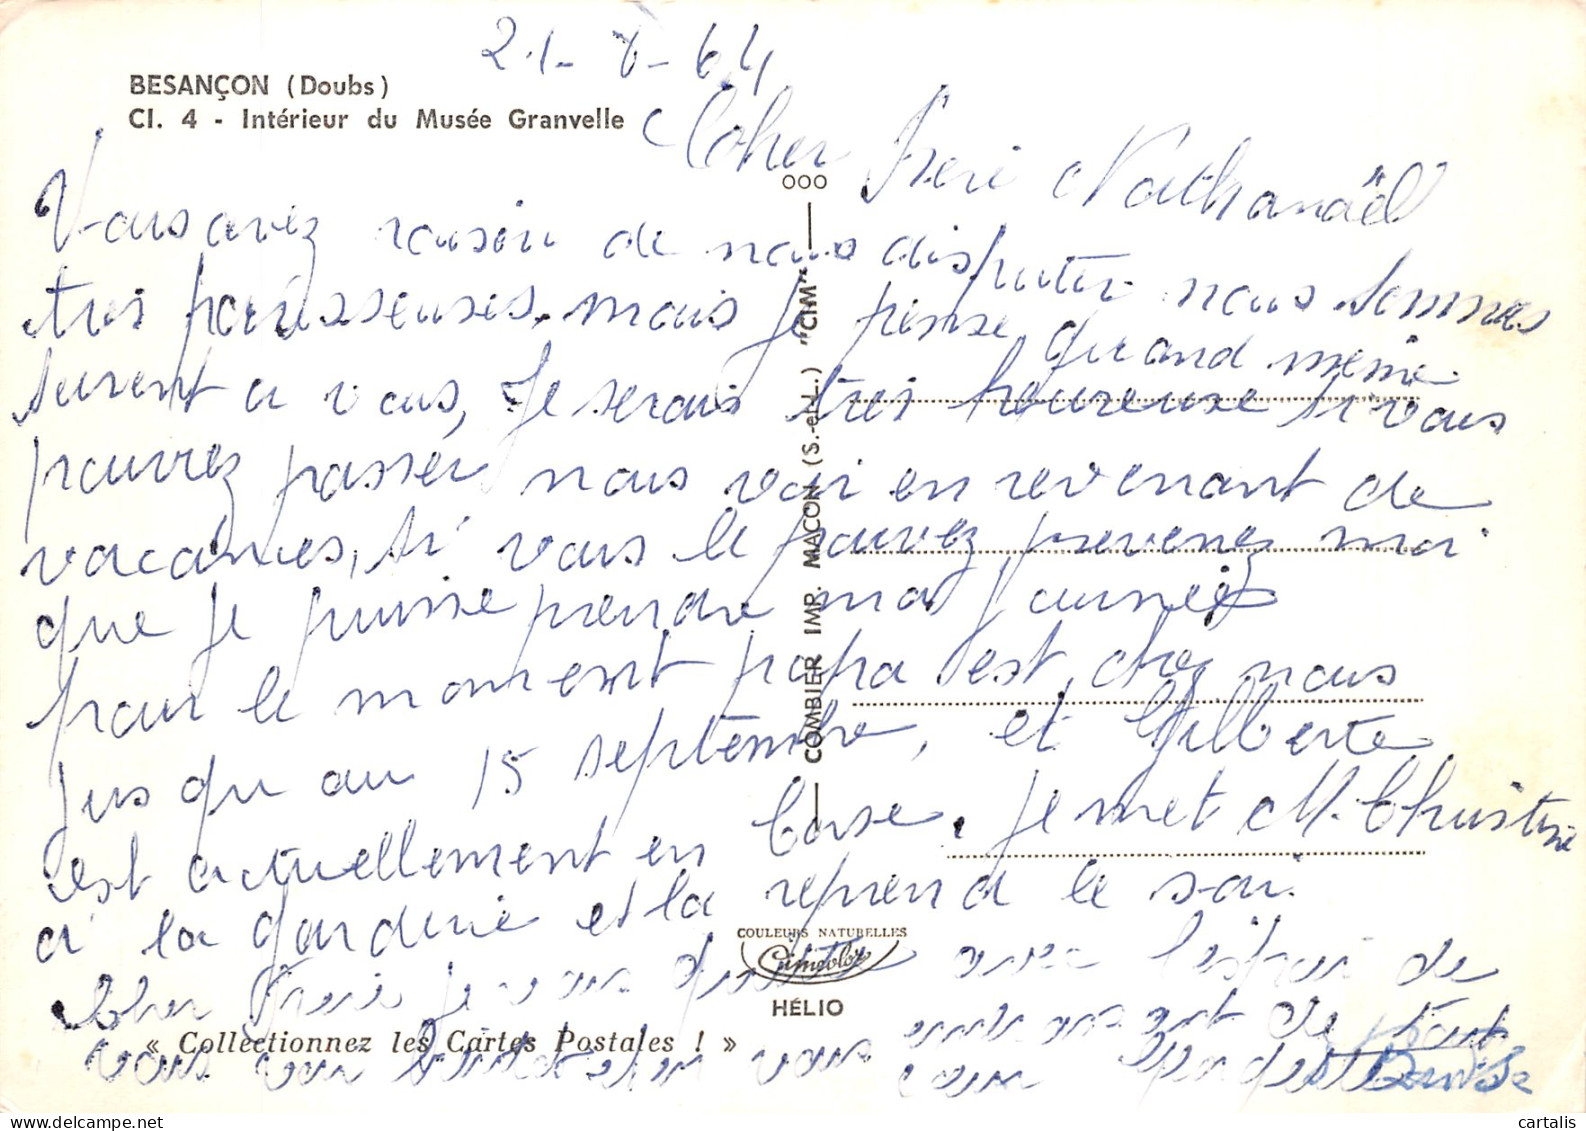 21-8-64
BESANÇON (Doubs)
Cl. 4 - Intérieur du Musée Granvelle
Cher Frere Nathanaël
Vous avez raison de nous disputer nous sommes
tres paresseuses, mais je pense quand meme
surent a vous, Je serais tres heureuse si vous
pouvez passer nous voir en revenant de
vacances, si vous le pouvez prevenez moi
que je puisse prendre ma journeé
pour le moment papa est chez nous
jusqu au 15 septembre, et Gilberte
est actuellement en Corse. Je met M. Christine
a la garderie et la reprend le soir.
Cher Frere je vous quitte avec l'espoir de
vous voir bientot
Denise
COMBIER IMP. MACON (S.-et-L.) "CIM"
COULEURS NATURELLES
Cimcolor
HÉLIO
« Collectionnez les Cartes Postales ! »
cartalis